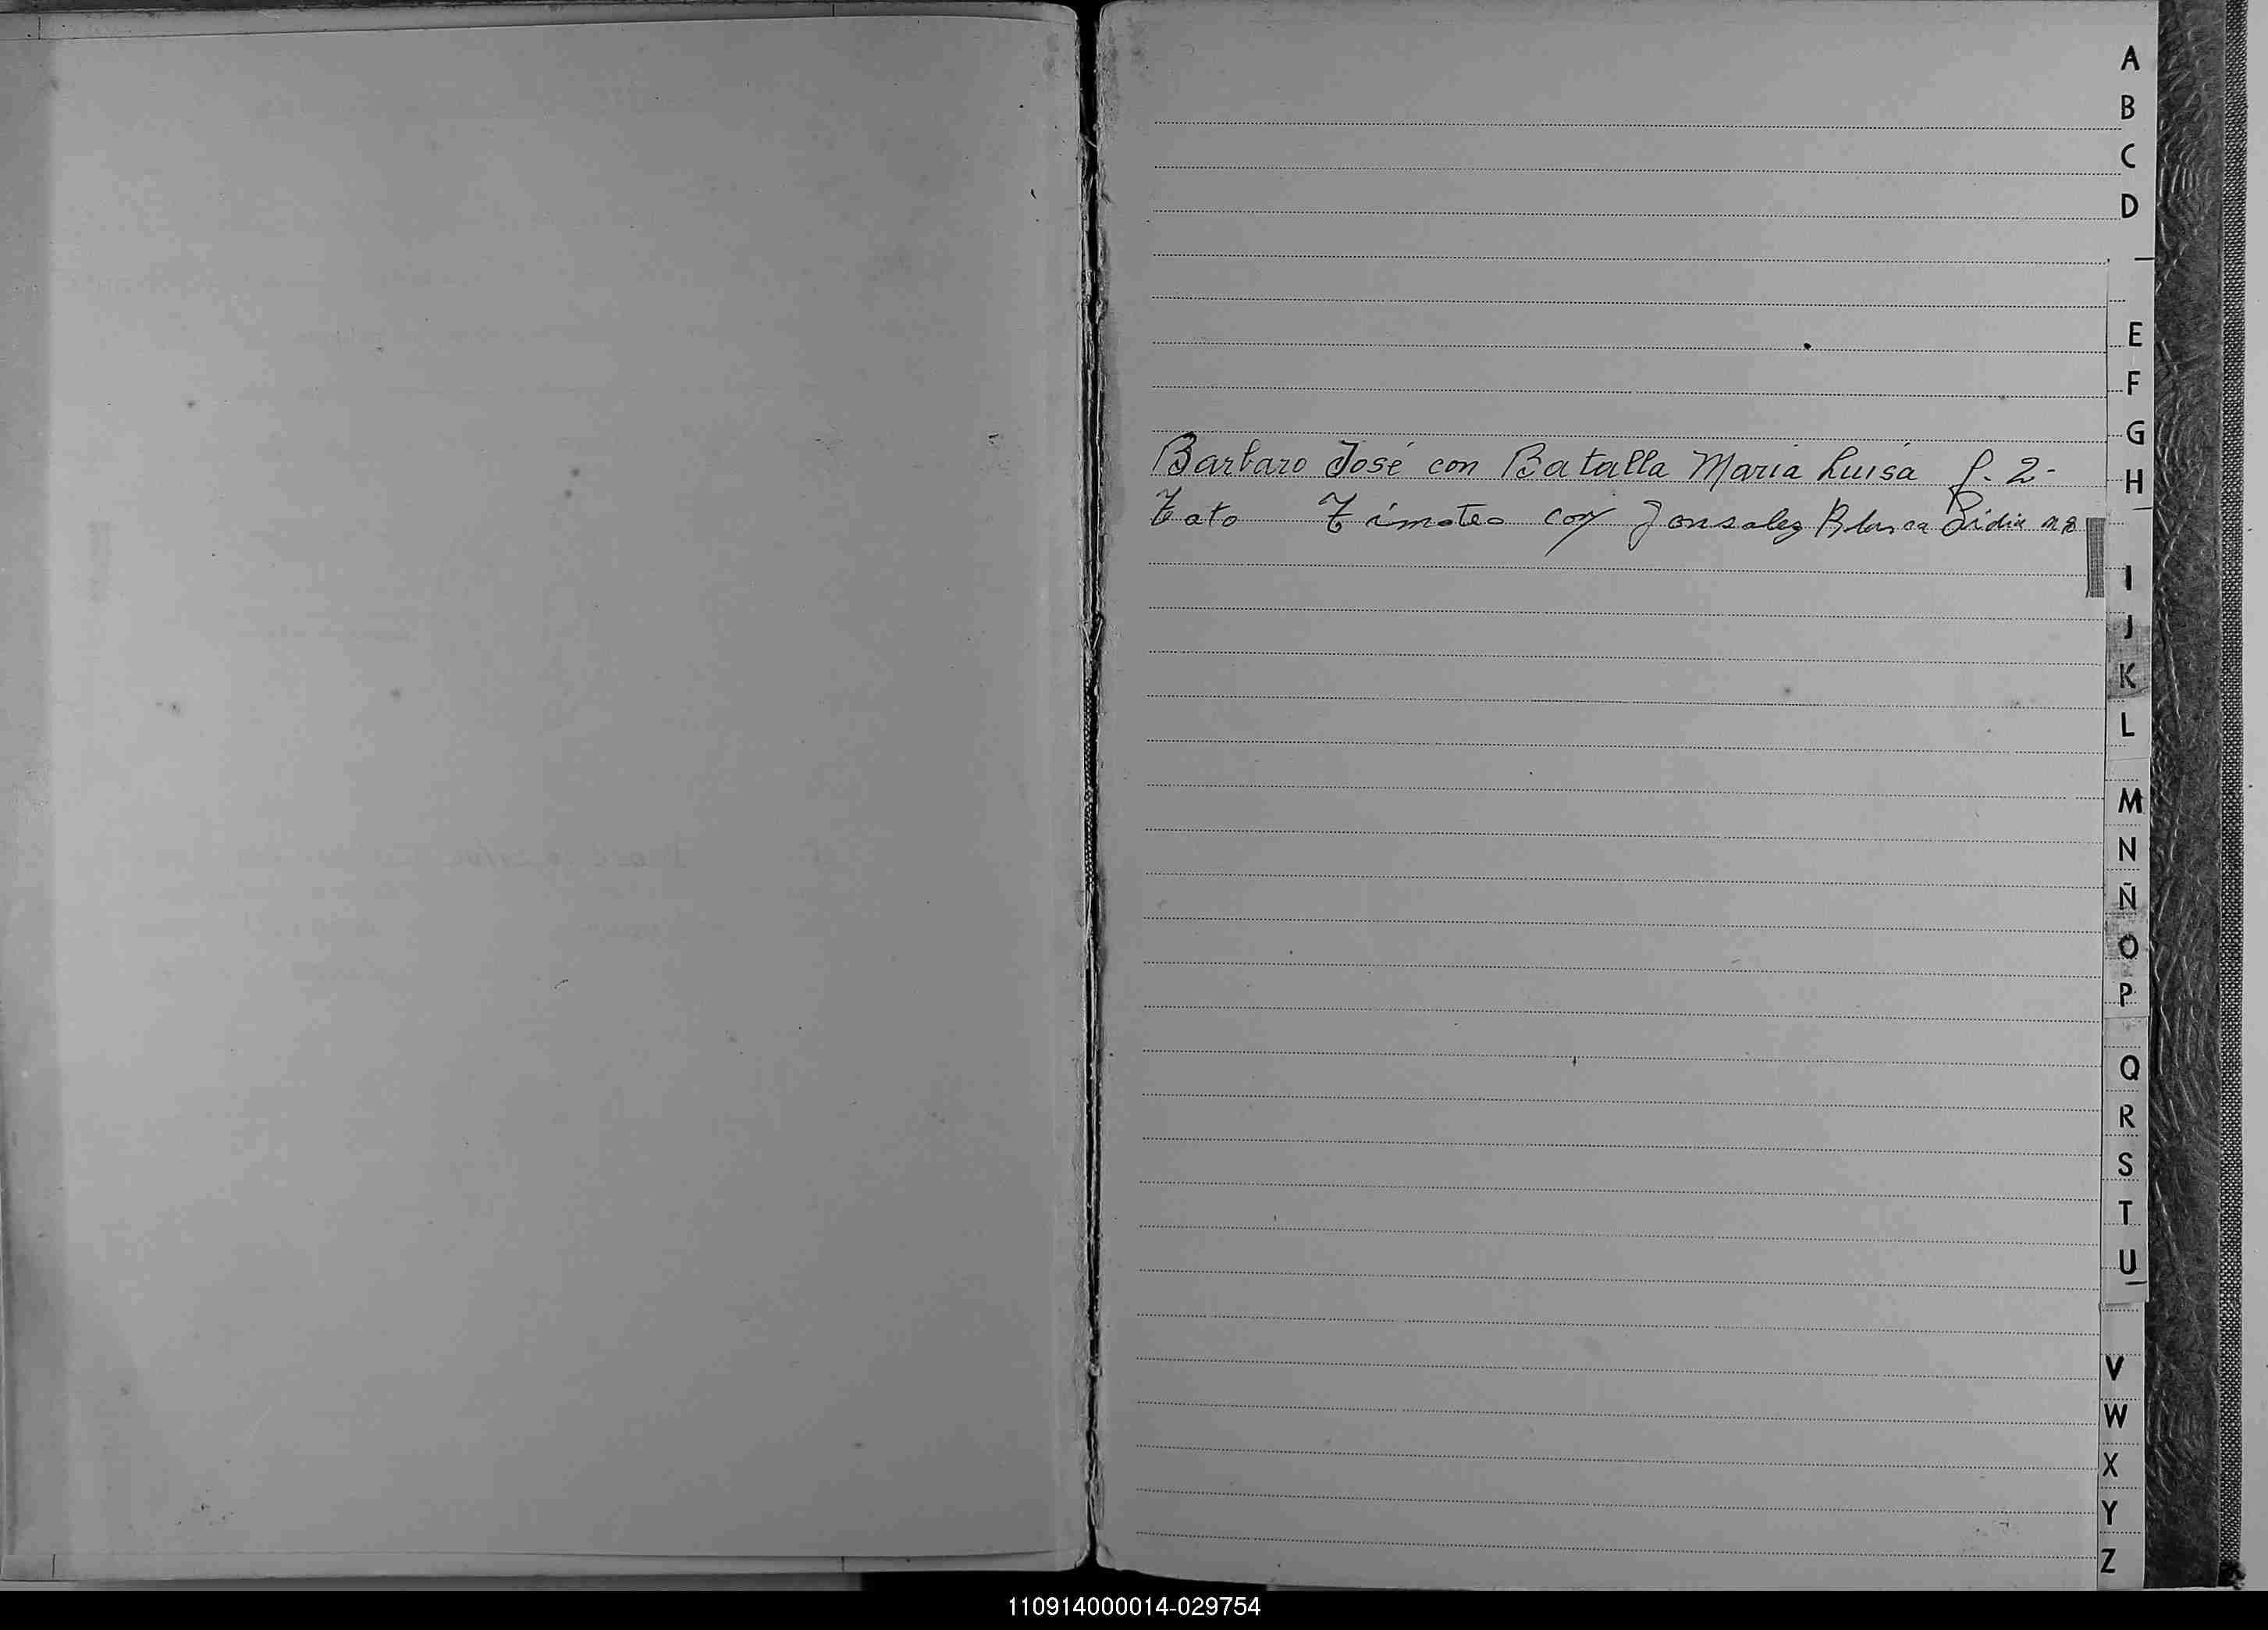 A
B
C
D
E
F
G
Barbaro José con Batalla Maria Luisa f. 2-
H
Tato Timoteo con Gonsalez Blanca Lidia
I
J
K
L
M
N
Ñ
O
P
Q
R
S
T
U
V
W
X
Y
Z
110914000014-029754